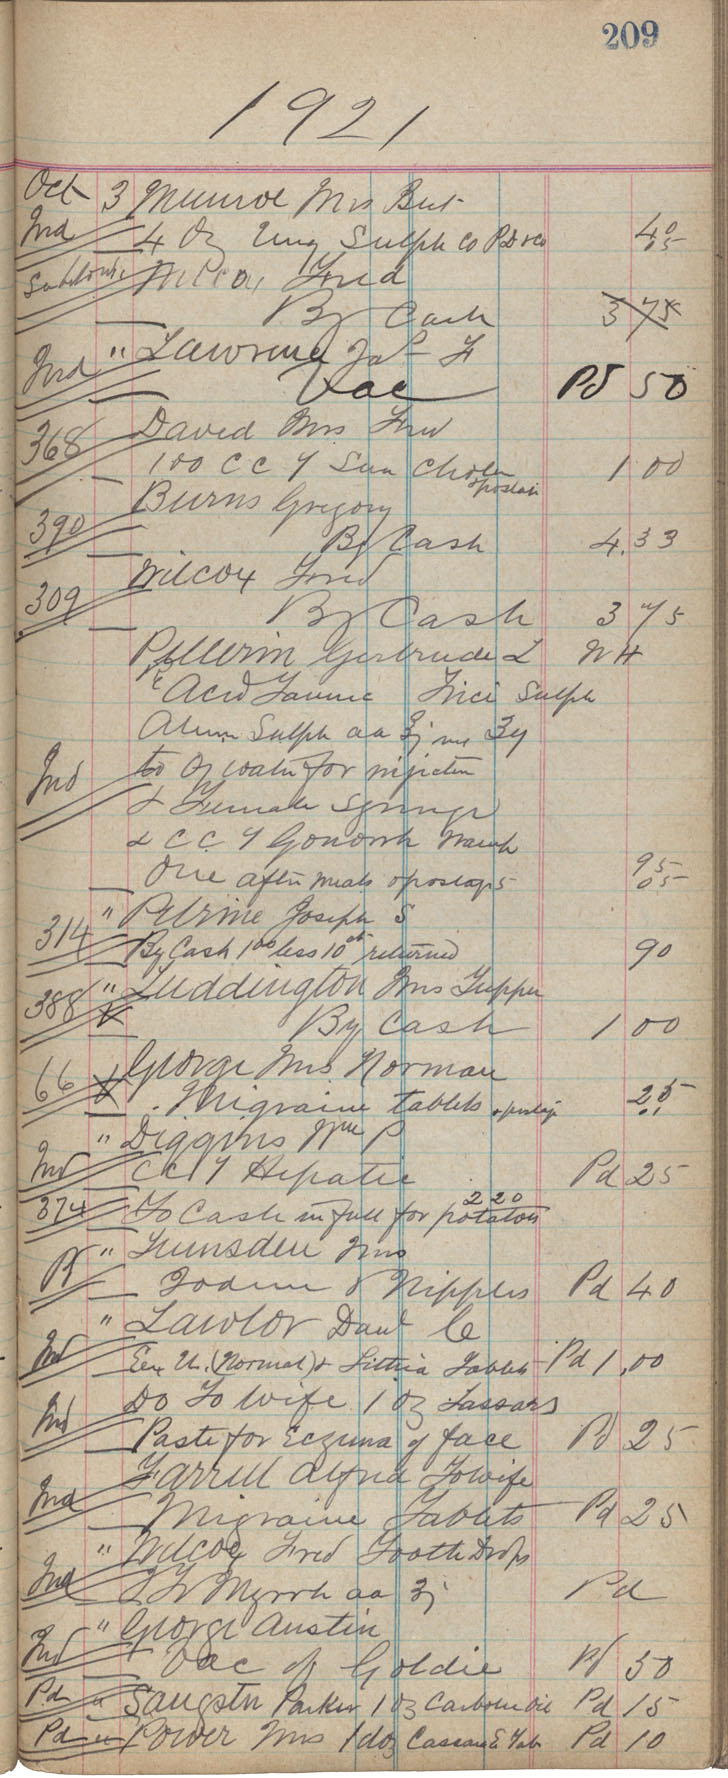 209
1921
Oct 3 Munroe Mrs Burt
Ind 4 Oz Ung Sulph Co P.D &co 40
05
Wilcox Fred
By Cash 3 75
Ind " Lawrence Jas F
Vac Pd 50
368 David Mrs Fred
100 C C T Sun Cholera 1 00
postage
Burns Gregory
390 By Cash 4.33
Wilcox Fred
309 By Cash 3 75
Gertrude L N H
Acid Tannic Zinci Sulph
Alum Sulph aa ʒj
Ind to Oz water for injection
& Female Syringe
& C C T Gonorrh
One after meals & postage 5 95
05
" Petrine Joseph S
314 By Cash 1 00 less 10 ct returned 90
388 " Luddington Mrs Tupper
By Cash 1 00
66 George Mrs Norman
Migraine tablets & postage 25
" Diggins Wm P
Ind C C T Hepatic Pd 25
374 To Cash in full for potatoes 2 20
" Lumsden Mrs
Iodine & Nipples Pd 40
" Lawlor Danl C
Ind (Normal) & Lithia Tablets Pd 1.00
Do To Wife 1 Oz Lassars
Ind Paste for Eczema of face Pd 25
Farrell Alfred To wife
Ind Migraine Tablets Pd 25
" Wilcox Fred Tooth Drops
Ind Tr Myrrh aa ʒj Pd
" George Austin
Ind Vac of Goldie Pd 50
Pd " Sangster Parker 1 oz Carbol Oil Pd 15
Pd " Power Mrs 1 doz Cascara Tab Pd 10